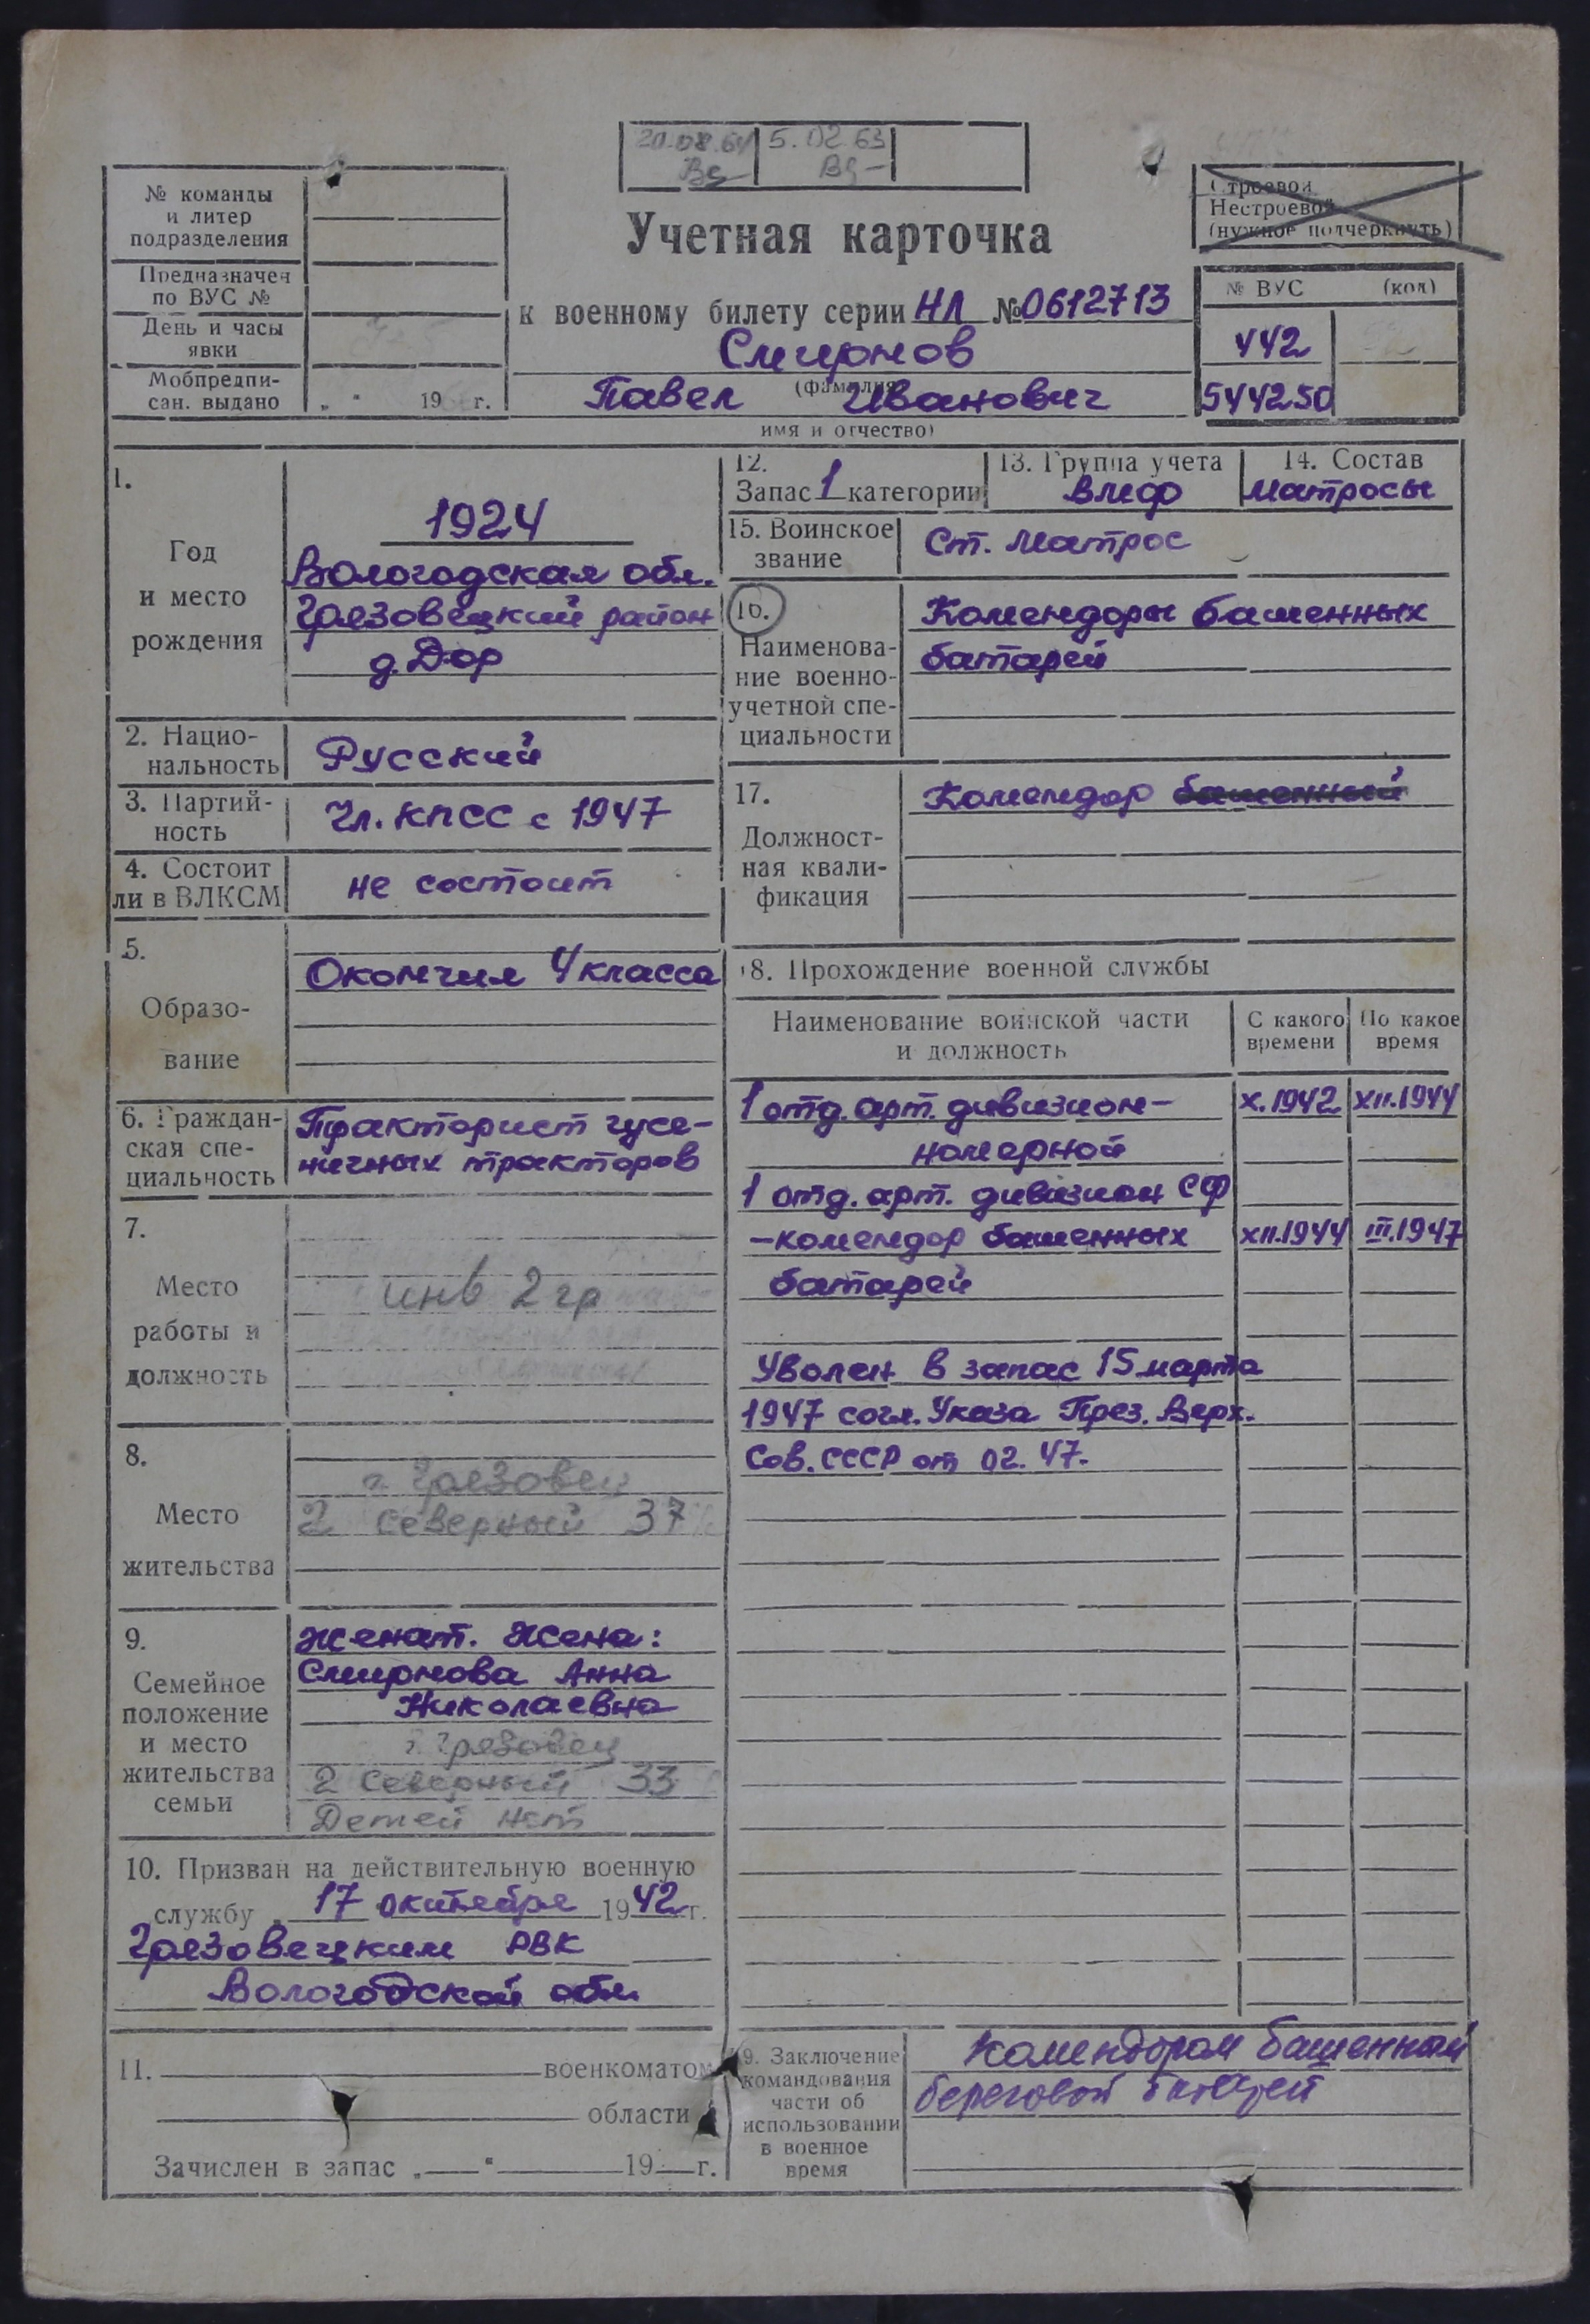 20.08.64 5.02.63
№ команды
и литер
подразделения
Предназначен
по ВУС №
День и часы
явки
Мобпредпи-
сан. выдано „ " 19 г.
Строевой
Нестроевой
(нужное подчеркнуть)
Учетная карточка
к военному билету серии НЛ № 0612713
Смирнов
(фамилия
Павел Иванович
имя и отчество)
№ ВУС (код)
442
544250
1.
Год
и место
рождения
1924
Вологодская обл.
Грязовецкий район
д. Дор
2. Нацио-
нальность
Русский
3. Партий-
ность
Чл. КПСС с 1947
4. Состоит
ли в ВЛКСМ
не состоит
5.
Образо-
вание
Окончил 4 класса
6. Граждан-
ская спе-
циальность
Тракторист гусе-
ничных тракторов
7.
Место
работы и
должность
инв 2 гр
8.
Место
жительства
г. Грязовец
2 Северный 37
9.
Семейное
положение
и место
жительства
семьи
женат. Жена:
Смирнова Анна
Николаевна
г. Грязовец
2 Северный 33
Детей нет
10. Призван на действительную военную
службу „ 17 октября 1942 г.
Грязовецким РВК
Вологодской обл.
11. военкоматом
области
Зачислен в запас „ " 19 г.
12.
Запас 1 категории
13. Группа учета
ВМФ
14. Состав
матросы
15. Воинское
звание
Ст. матрос
16.
Наименова-
ние военно-
учетной спе-
циальности
Комендоры башенных
батарей
17.
Должност-
ная квали-
фикация
Комендор башенный
18. Прохождение военной службы
Наименование воинской части
и должность
С какого
времени
По какое
время
1 отд. арт. дивизион - X.1942 XII.1944
номерной
1 отд. арт. дивизион СФ
- комендор башенных XII.1944 III.1947
батарей
Уволен в запас 15 марта
1947 согл. Указа През. Верх.
Сов. СССР от 02. 47.
19. Заключение
командования
части об
использовании
в военное
время
Комендором башенной
береговой батареи